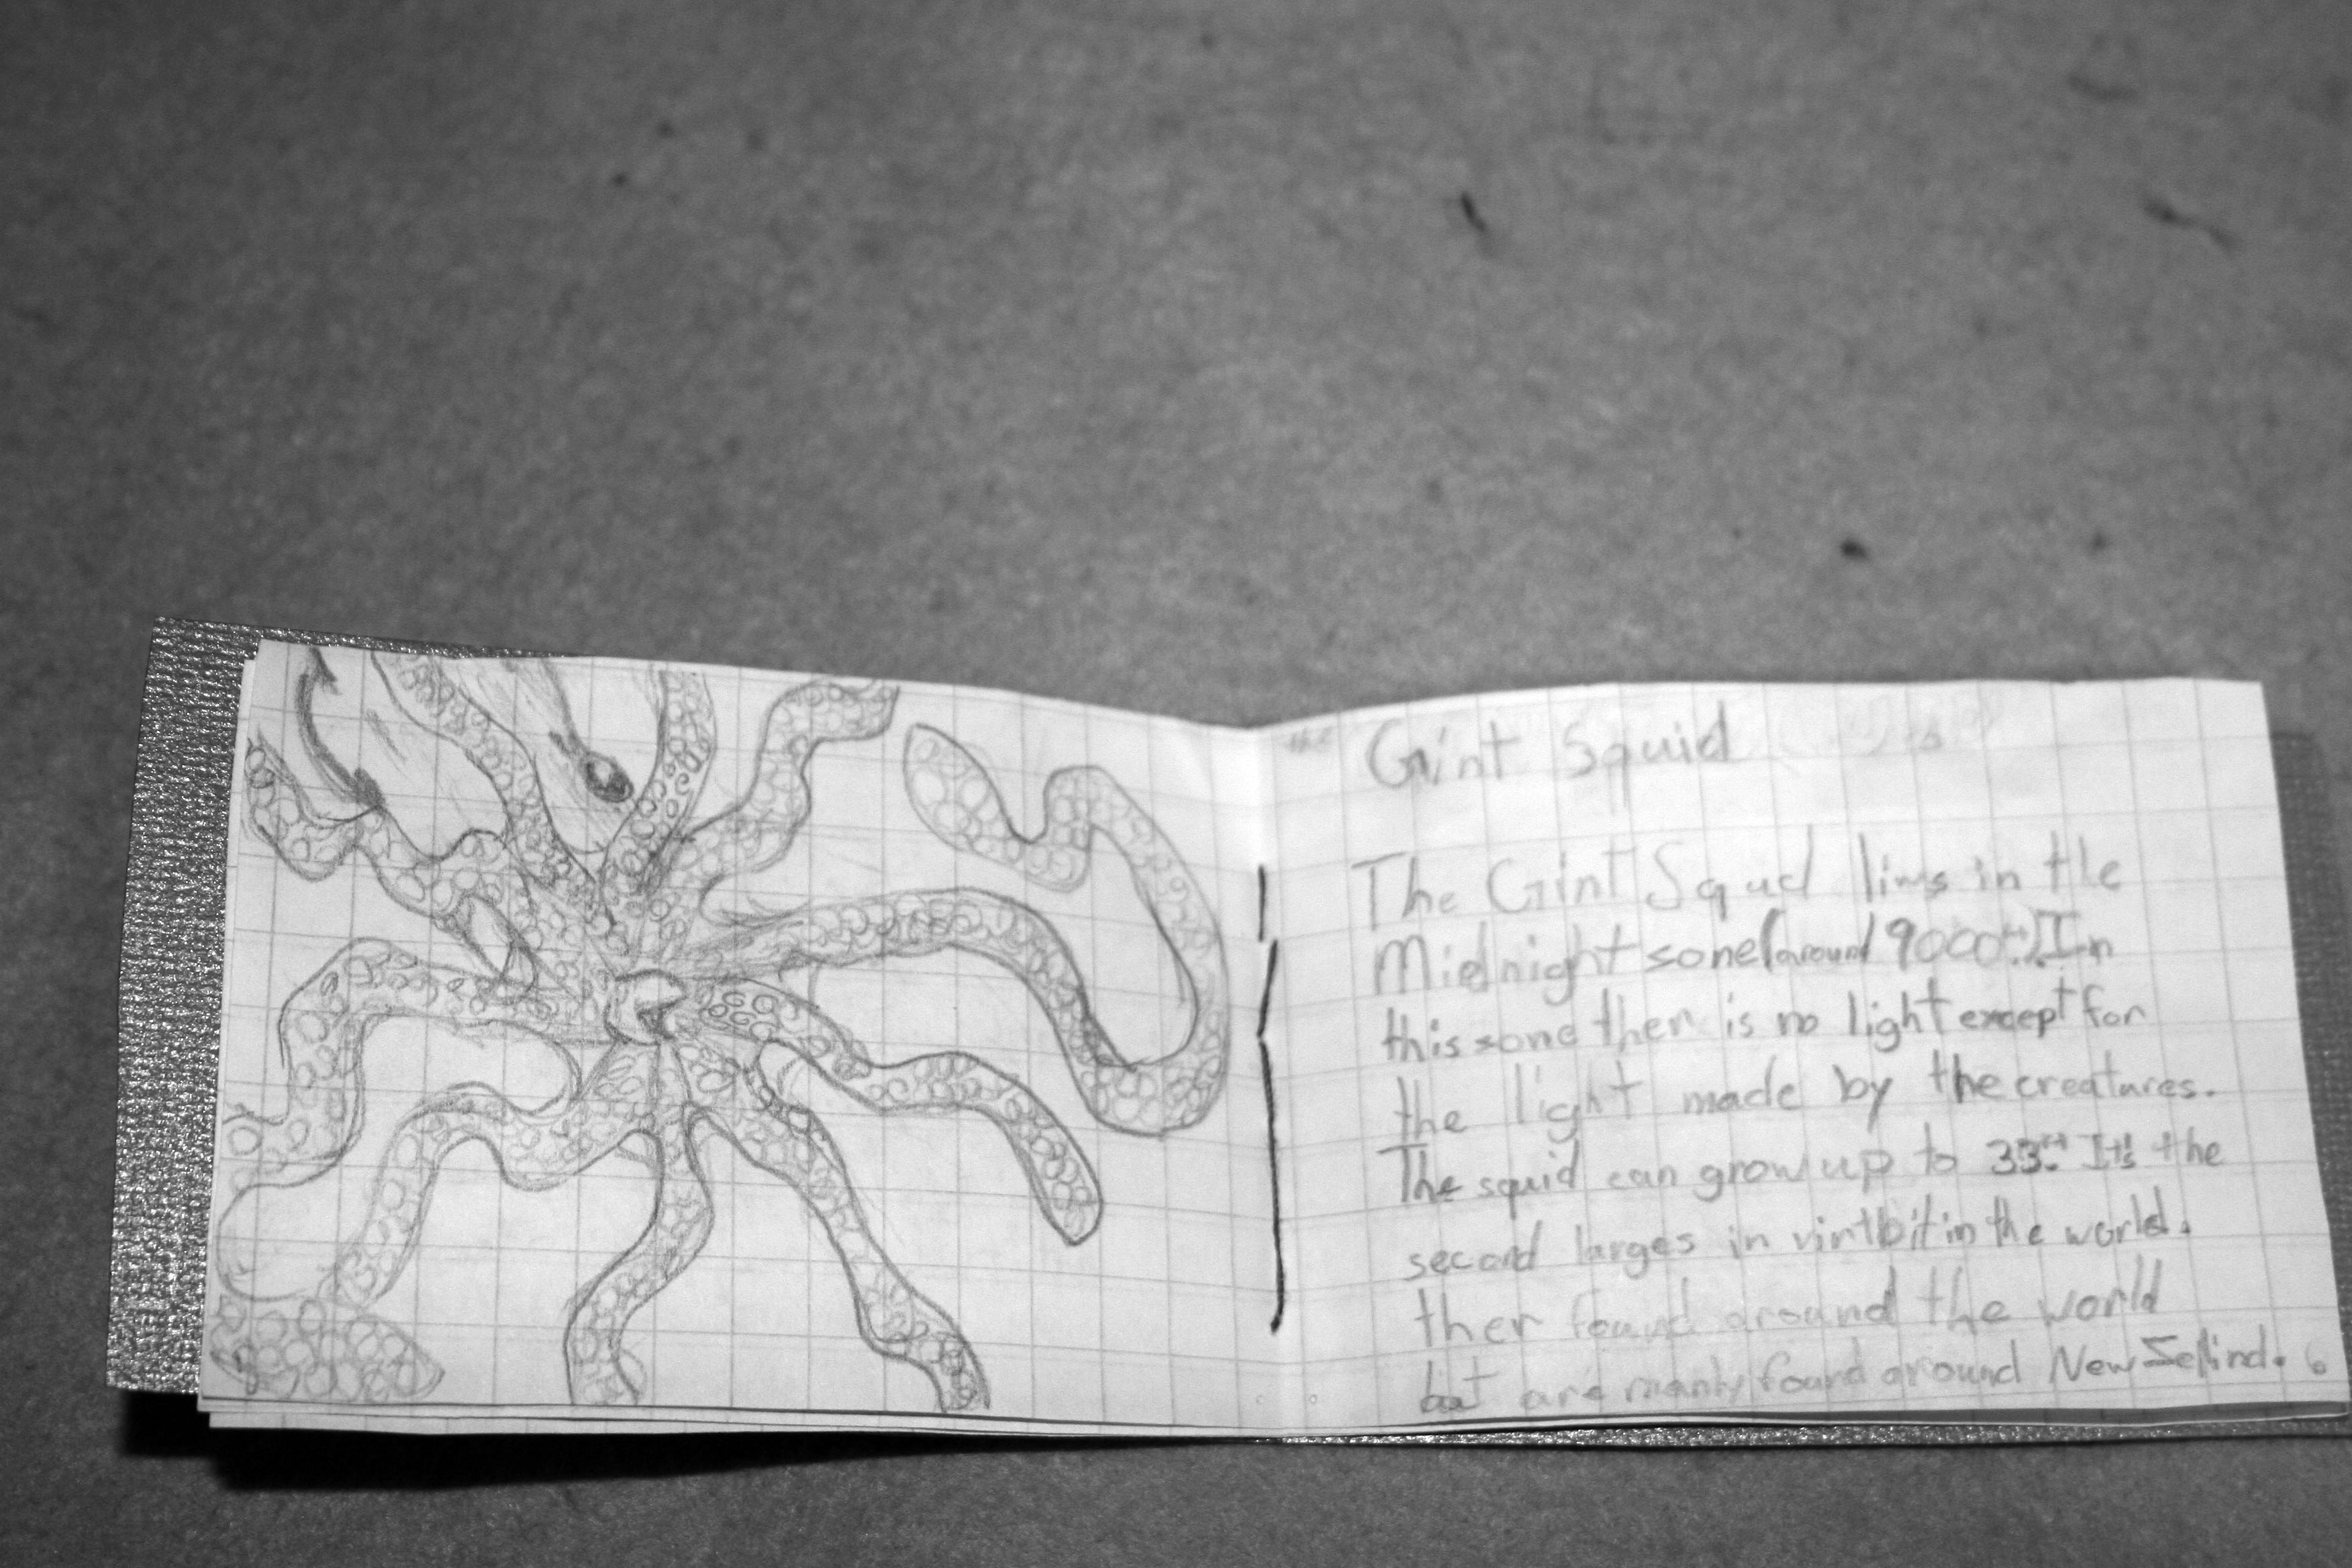 Gint Squid
The Gint Squd livs in the
Midnight sone(around 9000ft.)In
this sone ther is no light except for
the light made by the creatures.
The squid can grow up to 33ft. It's the
second larges in vintbit in the world.
ther found around the world
but are manly found around New Sellind. 6